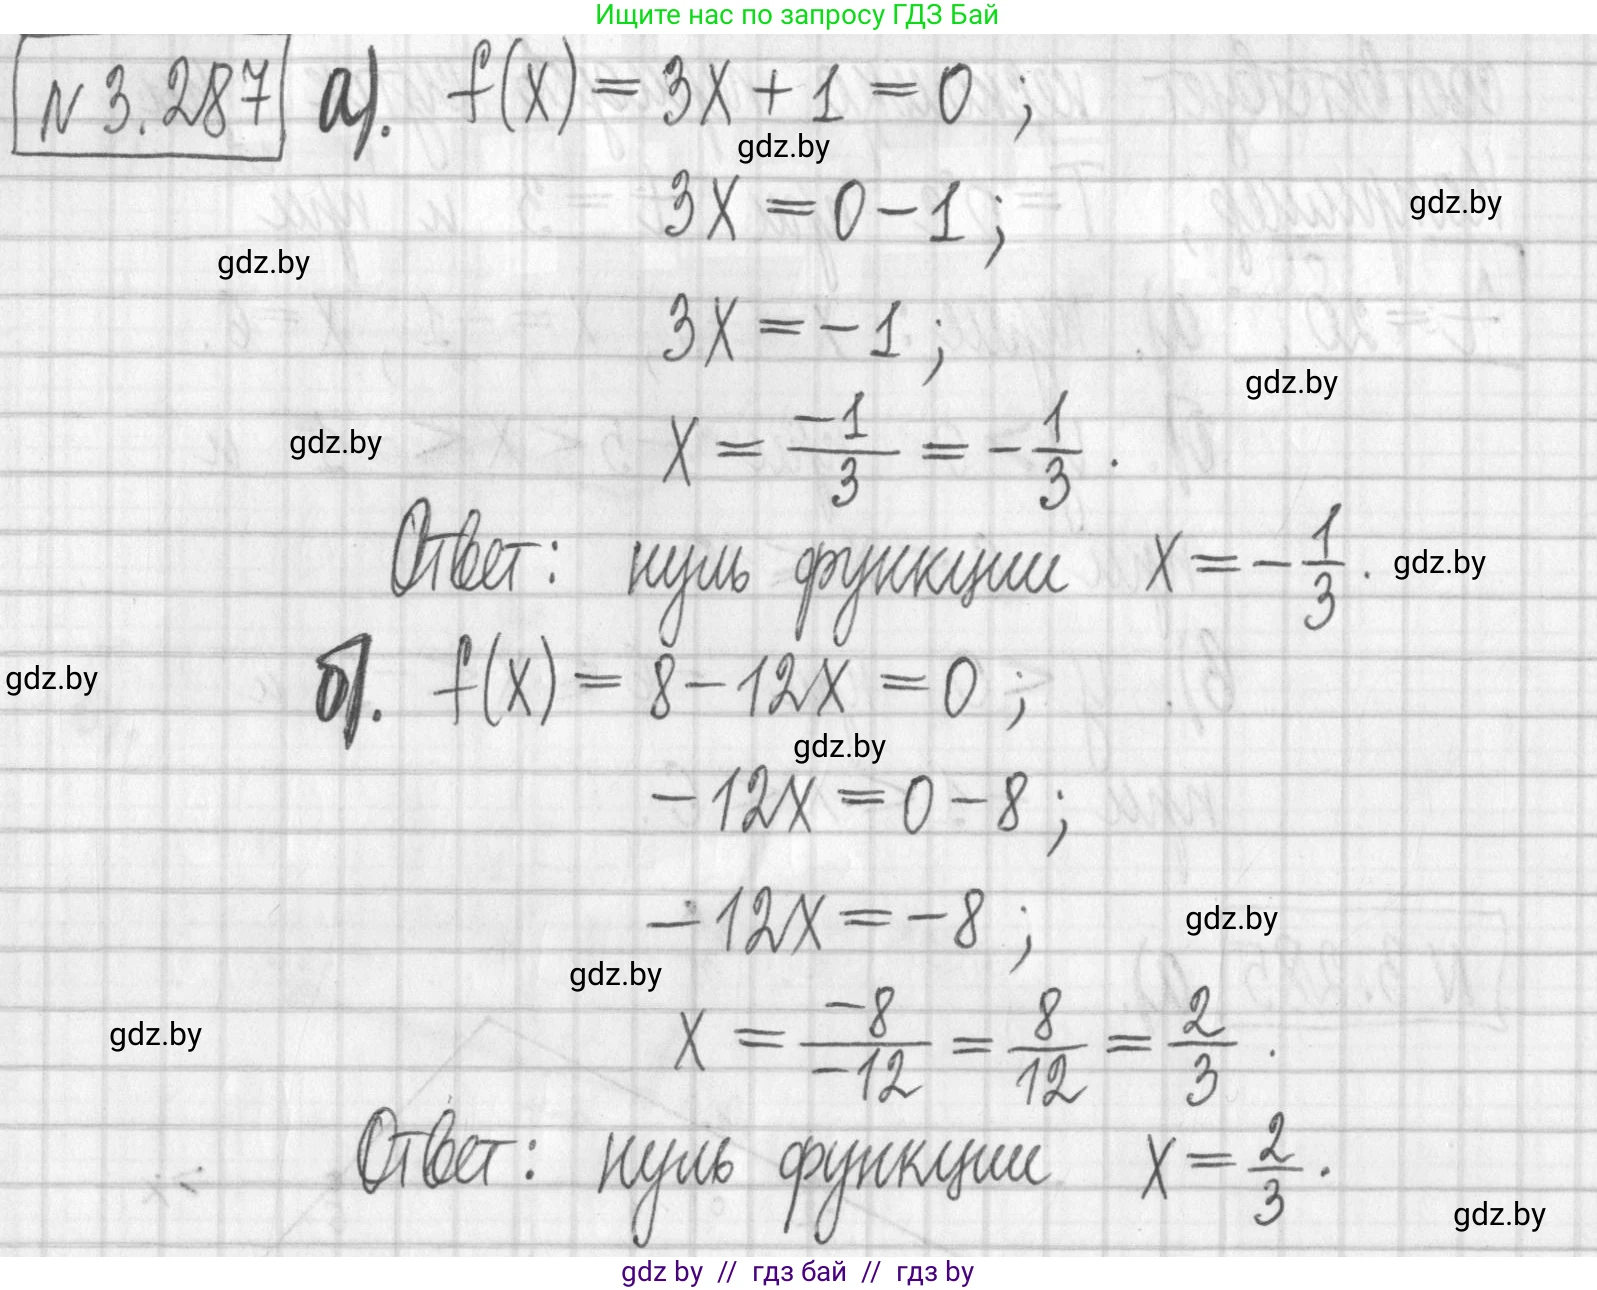 Ищите нас по запросу ГДЗ Бай
N 3.287 а). f(x) = 3x + 1 = 0 ;
gdz.by
3x = 0 - 1 ;
gdz.by
gdz.by
3x = -1 ;
gdz.by
gdz.by
x = -1/3 = -1/3 .
Ответ: нуль функции x = -1/3 .
gdz.by
gdz.by
б). f(x) = 8 - 12x = 0 ;
gdz.by
-12x = 0 - 8 ;
-12x = -8 ;
gdz.by
gdz.by
gdz.by
x = -8/-12 = 8/12 = 2/3 .
Ответ: нуль функции x = 2/3 .
gdz.by
gdz by // гдз бай // гдз by